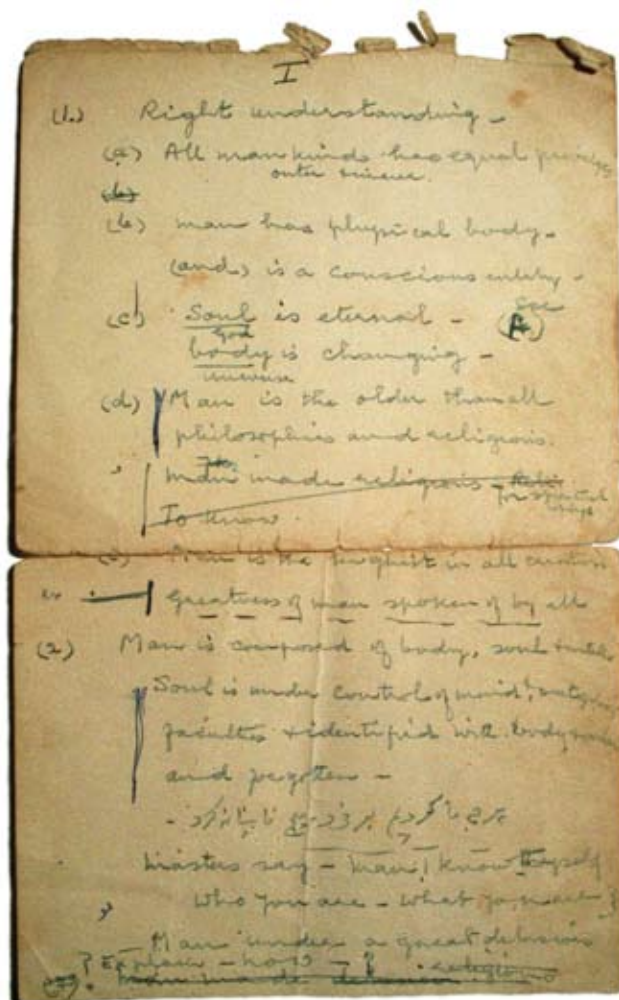 I
(1.) Right understanding -
(a) All mankind has equal privileges
outer & inner.
(b)
(b) man has physical body -
(and) is a conscious entity -
(c) Soul is eternal - See (A)
God
body is changing -
universe
(d) Man is the older than all
philosophies and religions.
man made religions - for spiritual
To know.
Man is the highest in all creation
Greatness of man spoken of by all
(2) Man is composed of body, soul &
Soul is under control of mind, outgoing
faculties & identified with body
and forgotten -
Masters say - Man! know thyself
Who you are - What you are
Man under a great delusion
? Explain - how - ?
man made religions